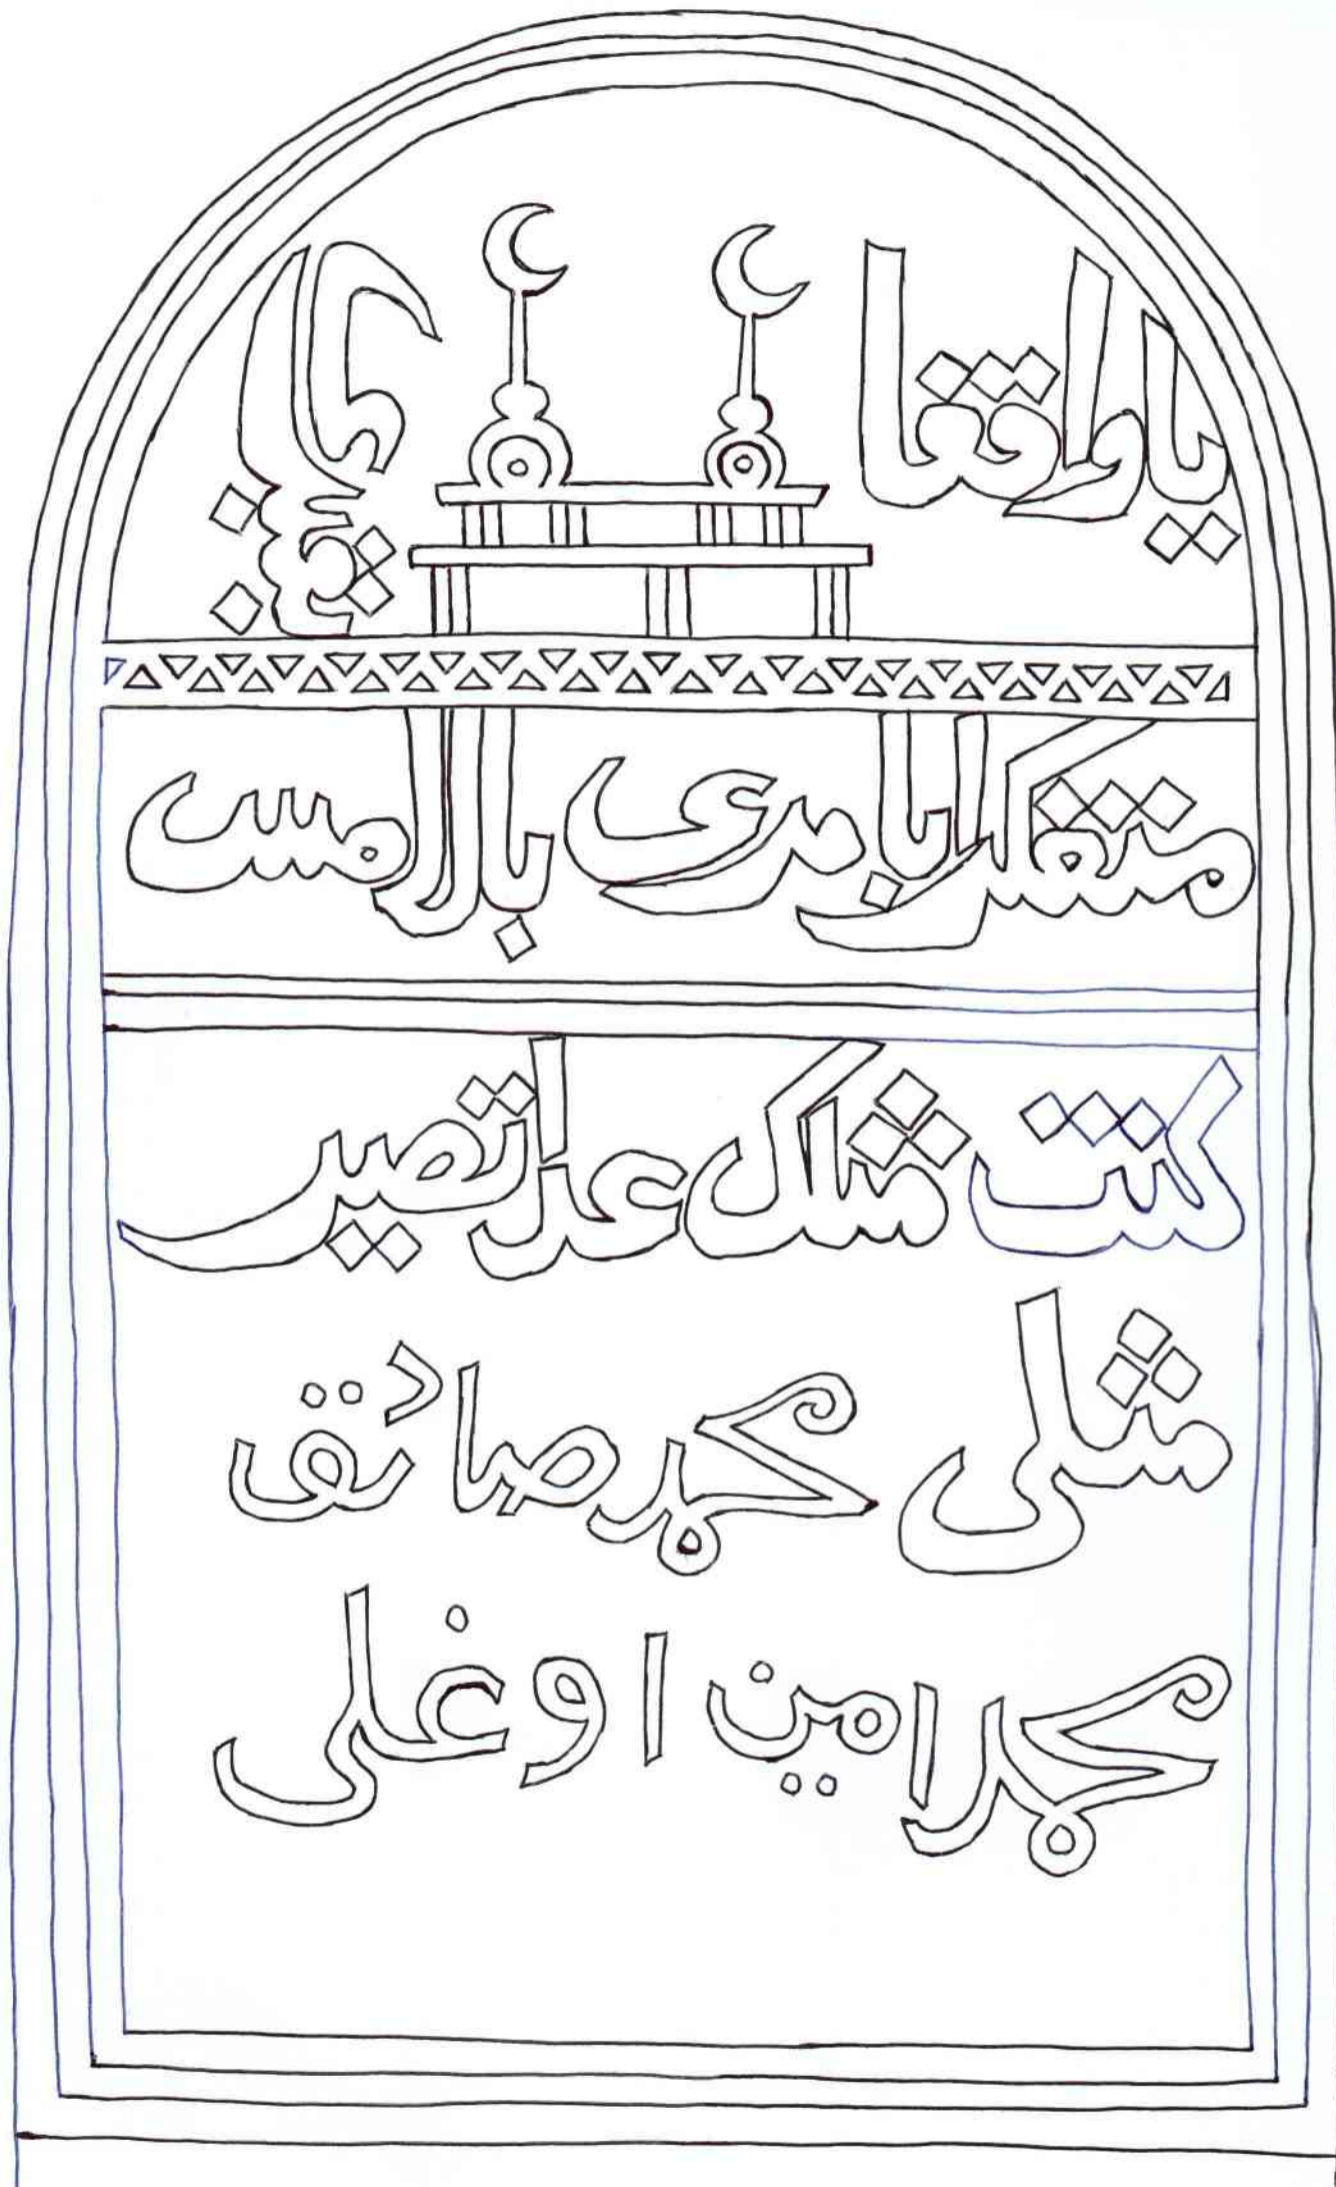 ياواقفا
متفكرا بامرى بالامس
كنت مثلك عدا تصير
مثلى محمد صادق
محمد امين اوغلى